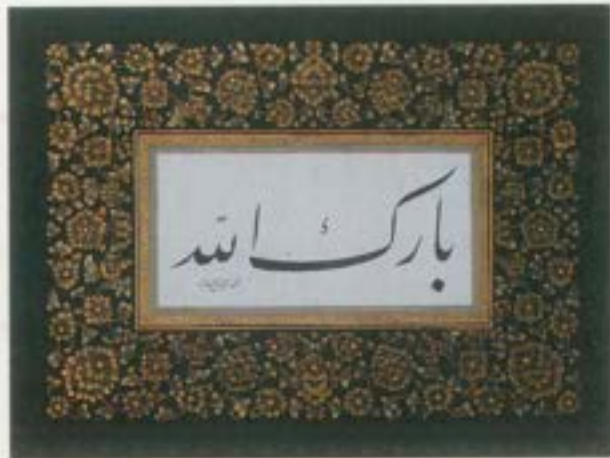 بارک الله